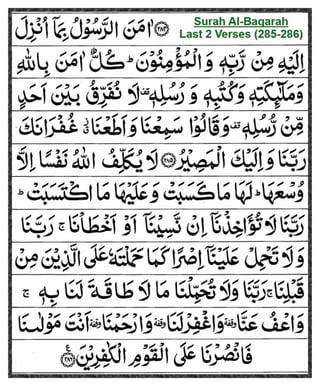 Surah Al-Baqarah
Last 2 Verses (285-286)
﴿۲۸۴﴾ اٰمَنَ الرَّسُوْلُ بِمَاۤ اُنْزِلَ
اِلَيْهِ مِنْ رَّبِّهٖ وَ الْمُؤْمِنُوْنَ ؕ كُلٌّ اٰمَنَ بِاللّٰهِ
وَمَلٰٓئِكَتِهٖ وَكُتُبِهٖ وَ رُسُلِهٖ ۟ لَا نُفَرِّقُ بَيْنَ اَحَدٍ
مِّنْ رُّسُلِهٖ ۟ وَقَالُوْا سَمِعْنَا وَاَطَعْنَا ٭۫ غُفْرَانَكَ
رَبَّنَا وَاِلَيْكَ الْمَصِيْرُ ﴿۲۸۵﴾ لَا يُكَلِّفُ اللّٰهُ نَفْسًا اِلَّا
وُسْعَهَا ؕ لَهَا مَا كَسَبَتْ وَعَلَيْهَا مَا اكْتَسَبَتْ ؕ
رَبَّنَا لَا تُؤَاخِذْنَاۤ اِنْ نَّسِيْنَاۤ اَوْ اَخْطَاْنَا ۚ رَبَّنَا
وَلَا تَحْمِلْ عَلَيْنَاۤ اِصْرًا كَمَا حَمَلْتَهٗ عَلَى الَّذِيْنَ مِنْ
قَبْلِنَا ۚ رَبَّنَا وَلَا تُحَمِّلْنَا مَا لَا طَاقَةَ لَنَا بِهٖ ۚ
وَاعْفُ عَنَّا وقفة وَاغْفِرْ لَنَا وقفة وَارْحَمْنَا وقفة اَنْتَ مَوْلٰىنَا
فَانْصُرْنَا عَلَى الْقَوْمِ الْكٰفِرِيْنَ ﴿۲۸۶﴾ ع